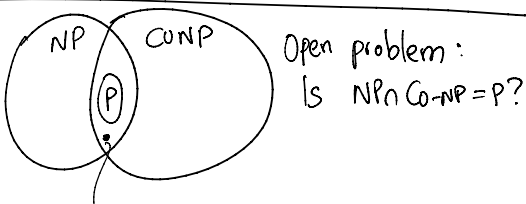 NP
CONP
P
Open problem:
Is NP∩ Co-NP = P?